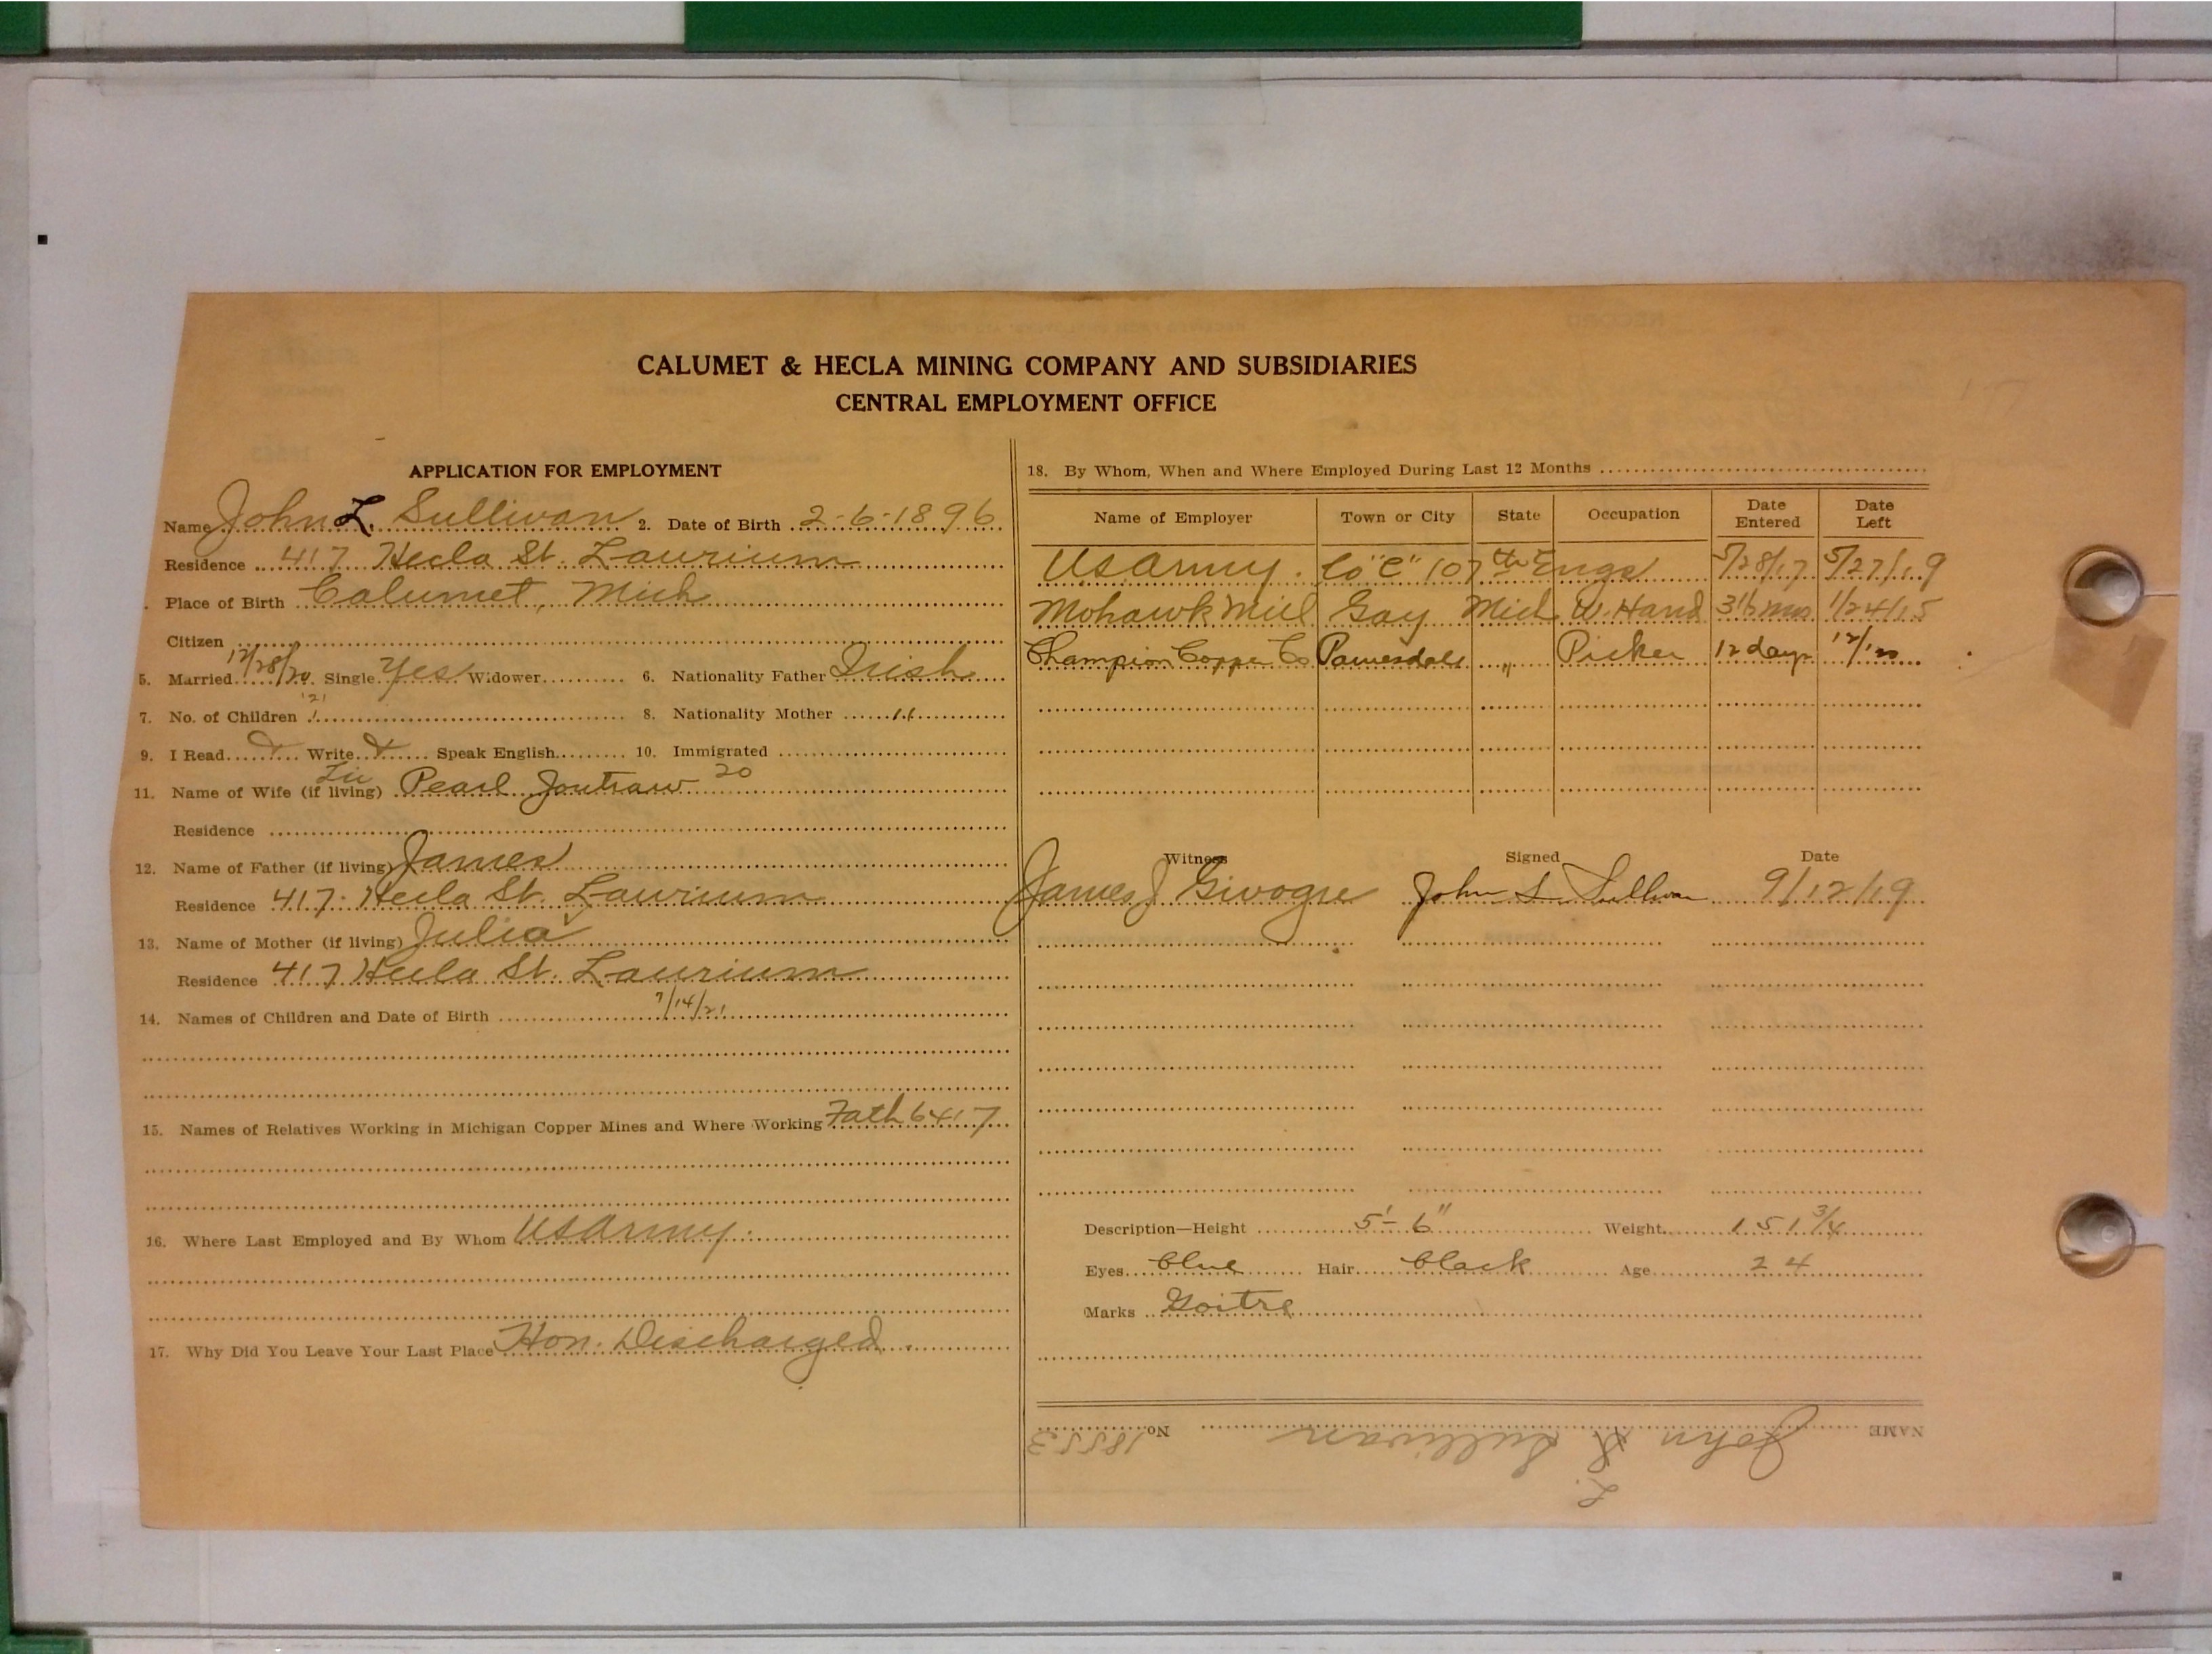 CALUMET & HECLA MINING COMPANY AND SUBSIDIARIES
CENTRAL EMPLOYMENT OFFICE
APPLICATION FOR EMPLOYMENT
Name John L. Sullivan 2. Date of Birth 2-6-1896
Residence 417 Hecla St. Laurium
Place of Birth Calumet, Mich
Citizen
12/28/20
5. Married Single yes Widower 6. Nationality Father Irish
'21
7. No. of Children 1 8. Nationality Mother "
9. I Read Write Speak English 10. Immigrated
11. Name of Wife (if living) Pearl 20
Residence
12. Name of Father (if living) James
Residence 417 Hecla St. Laurium
13. Name of Mother (if living) Julia
Residence 417 Hecla St. Laurium
14. Names of Children and Date of Birth 7/14/21
15. Names of Relatives Working in Michigan Copper Mines and Where Working Fath 6417
16. Where Last Employed and By Whom US Army.
17. Why Did You Leave Your Last Place Hon. Discharged
18. By Whom, When and Where Employed During Last 12 Months
Name of Employer Town or City State Occupation Date Entered Date Left
US Army. Co "C" 107th Engs 5/28/17 5/27/19
Mohawk Mill Gay Mich W. Hand 3 1/2 mos 1/24/15
Champion Copper Co Painesdale " Picker 12 days 12/20
Witness Signed Date
James J John L Sullivan 9/12/19
Description—Height 5'-6" Weight 151 3/4
Eyes blue Hair black Age 24
Marks Goitre
NAME John S. Sullivan No. 18553
L.